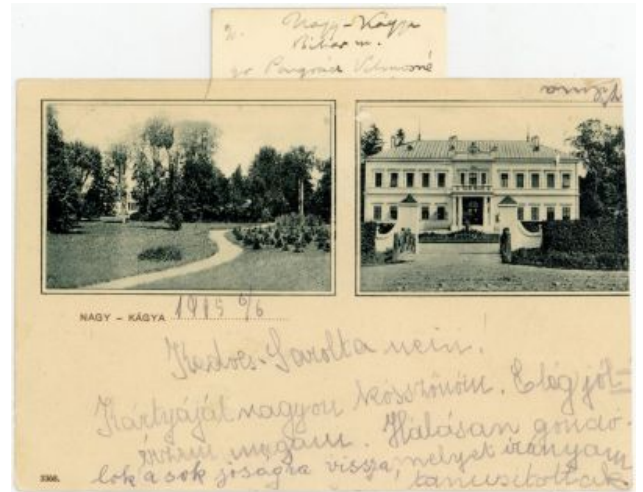 Nagy-Kágya
Bihar m.
gr Pongrácz Vilmosné
NAGY – KÁGYA 1915 6/6
Kedves Sarolta néni.
Kártyáját nagyon köszönöm. Elég jól
érzem magam. Hálásan gondó-
lok a sok jóságra vissza, melyet irányam
tanusitottak
3366.